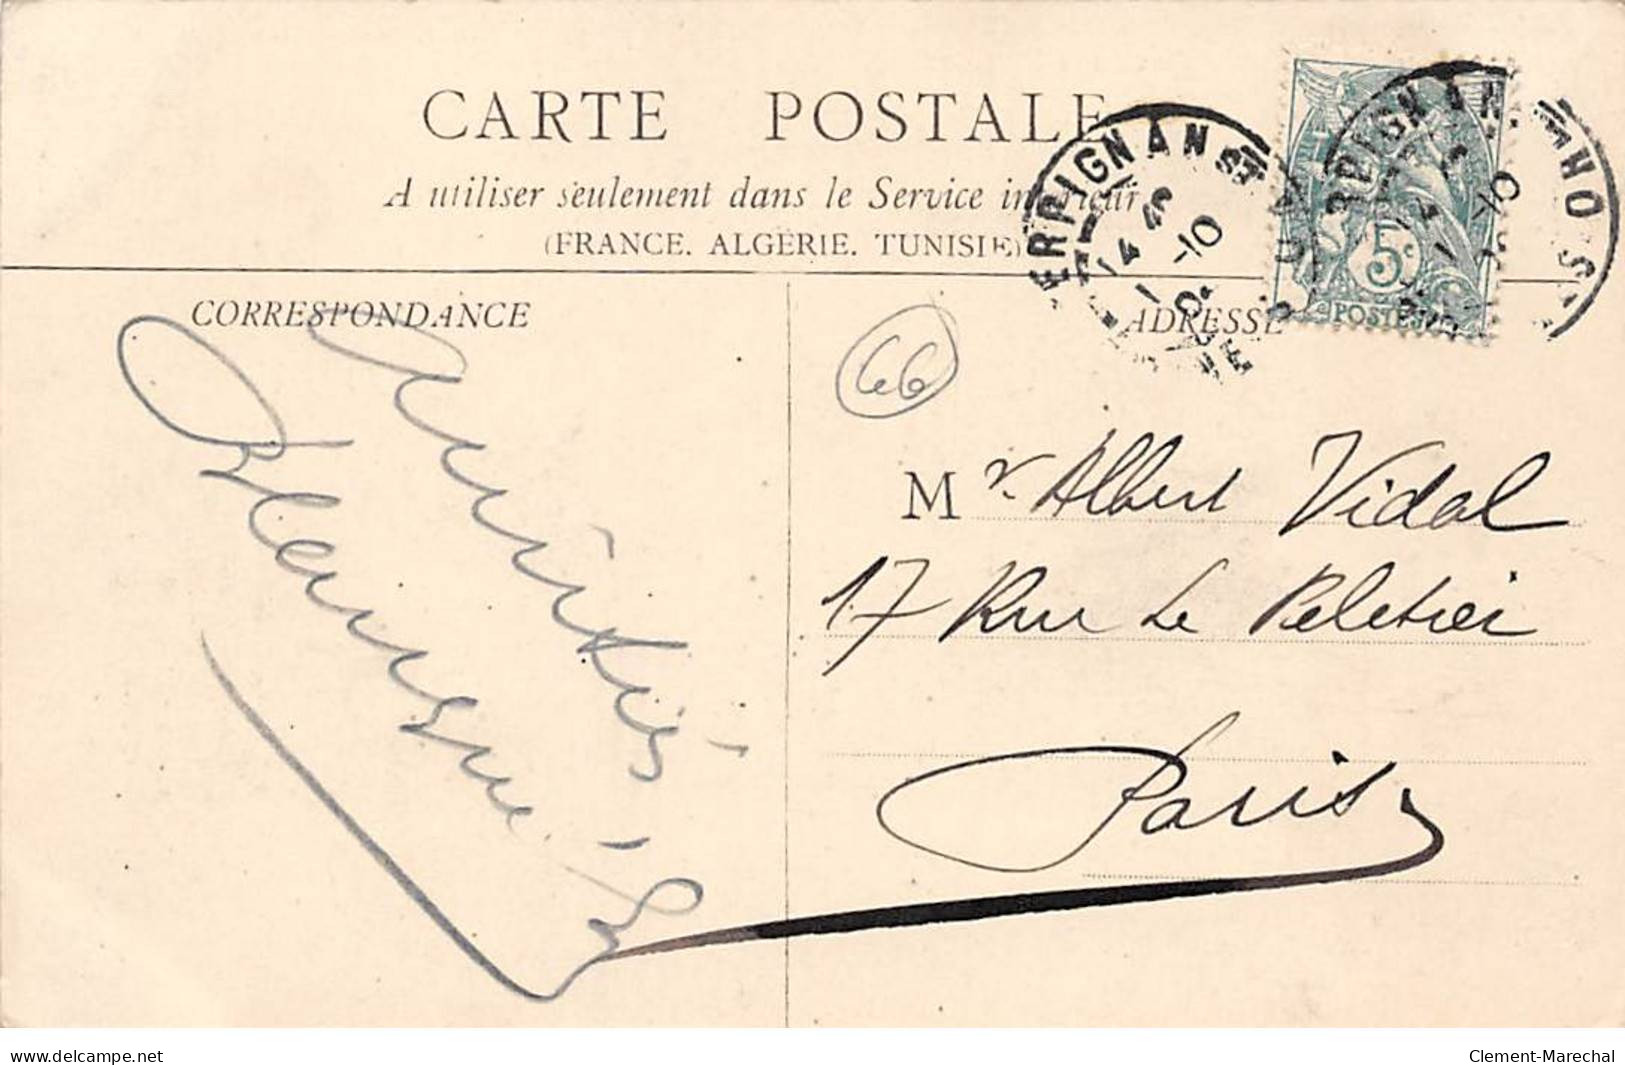 CARTE POSTALE
A utiliser seulement dans le Service intérieur
(FRANCE, ALGÉRIE, TUNISIE)
CORRESPONDANCE
ADRESSE
5c
POSTES
PERPIGNAN
PERPIGNAN
14 40
1-10
66
Mr. Albert Vidal
17 Rue Le Peletier
Paris
Amitiés
delcampe.net
Clement-Marechal